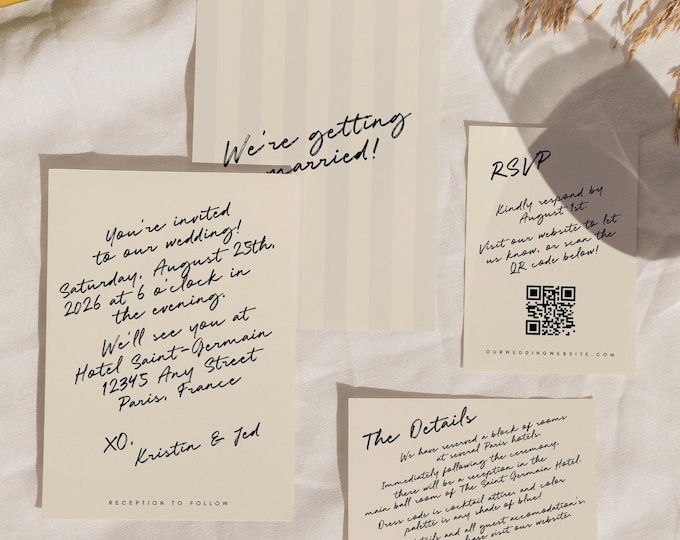 We're getting
married!
You're invited
to our wedding!
Saturday, August 25th,
2026 at 6 o'clock in
the evening.
We'll see you at
Hotel Saint-Germain
12345 Any Street
Paris, France
XO,
Kristin & Jed
RECEPTION TO FOLLOW
RSVP
Kindly respond by
August 1st.
Visit our website to let
us know, or scan the
QR code below!
OURWEDDINGWEBSITE.COM
The Details
We have reserved a block of rooms
at several Paris hotels
Immediately following the ceremony,
there will be a reception in the
main ball room of The Saint Germain Hotel.
Dress code is cocktail attire, and color
palette is any shade of blue!
and all guest accomodation's,
visit our website.